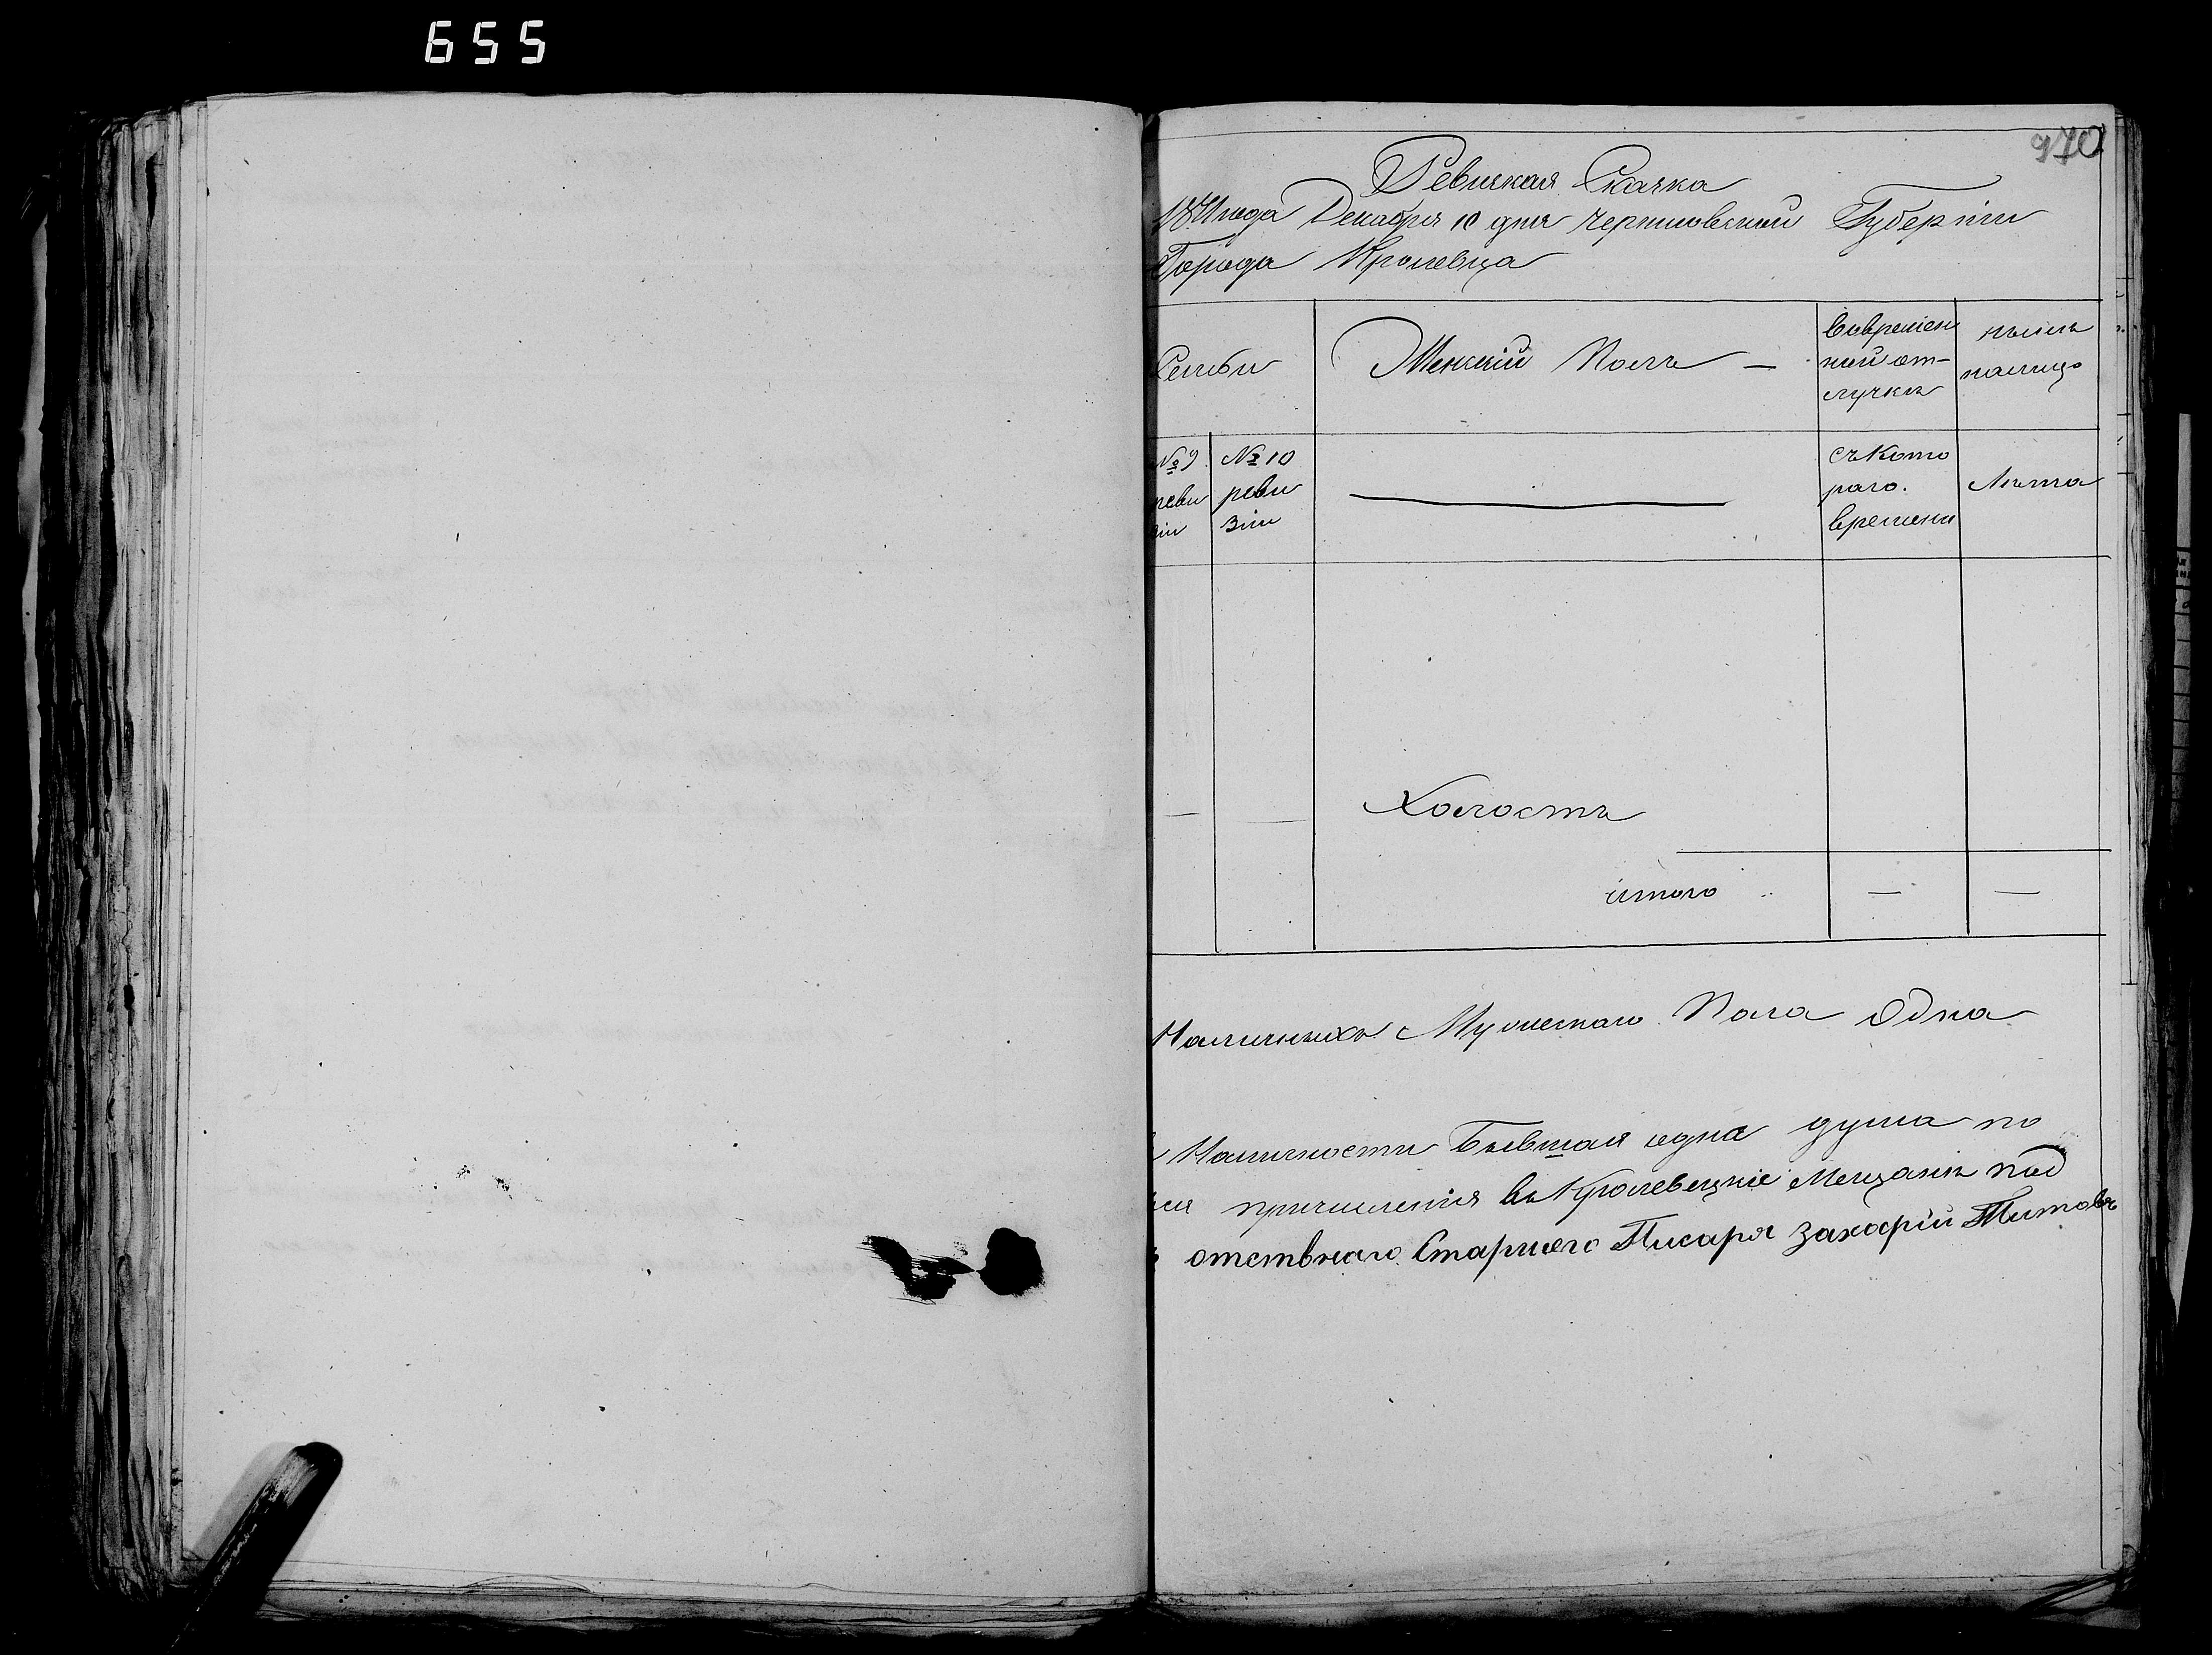 655
970
Ревизская Сказка
года Декабря 10 дня Черниговской Губерніи
Города Кролевца
Семьи
Женскій Полъ —
Вовремен
ной от-
лучкѣ
нынѣ
налицо
№ 9 ревизіи
№ 10
реви
зіи
съ кото
раго.
времени
Лѣта
— — Холостъ
итого — —
Наличныхъ Мужескаго Пола одна
Наличности Бывшая одна душа по
причисленія въ Кролевецкіе Мещанѣ под
отствнаго Старшего Писаря Захарій Титовъ